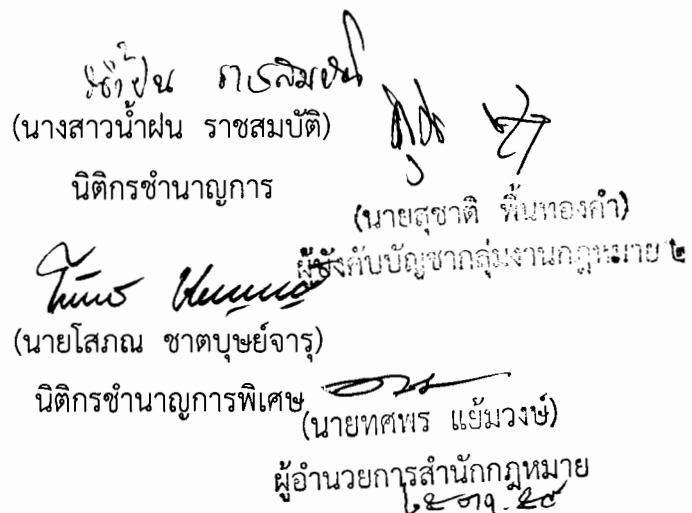 น้ำฝน ราชสมบัติ
(นางสาวน้ำฝน ราชสมบัติ)
นิติกรชำนาญการ
(นายสุชาติ พื้นทองคำ)
ผู้บังคับบัญชากลุ่มงานกฎหมาย ๒
(นายโสภณ ชาตบุษย์จารุ)
นิติกรชำนาญการพิเศษ
(นายทศพร แย้มวงษ์)
ผู้อำนวยการสำนักกฎหมาย